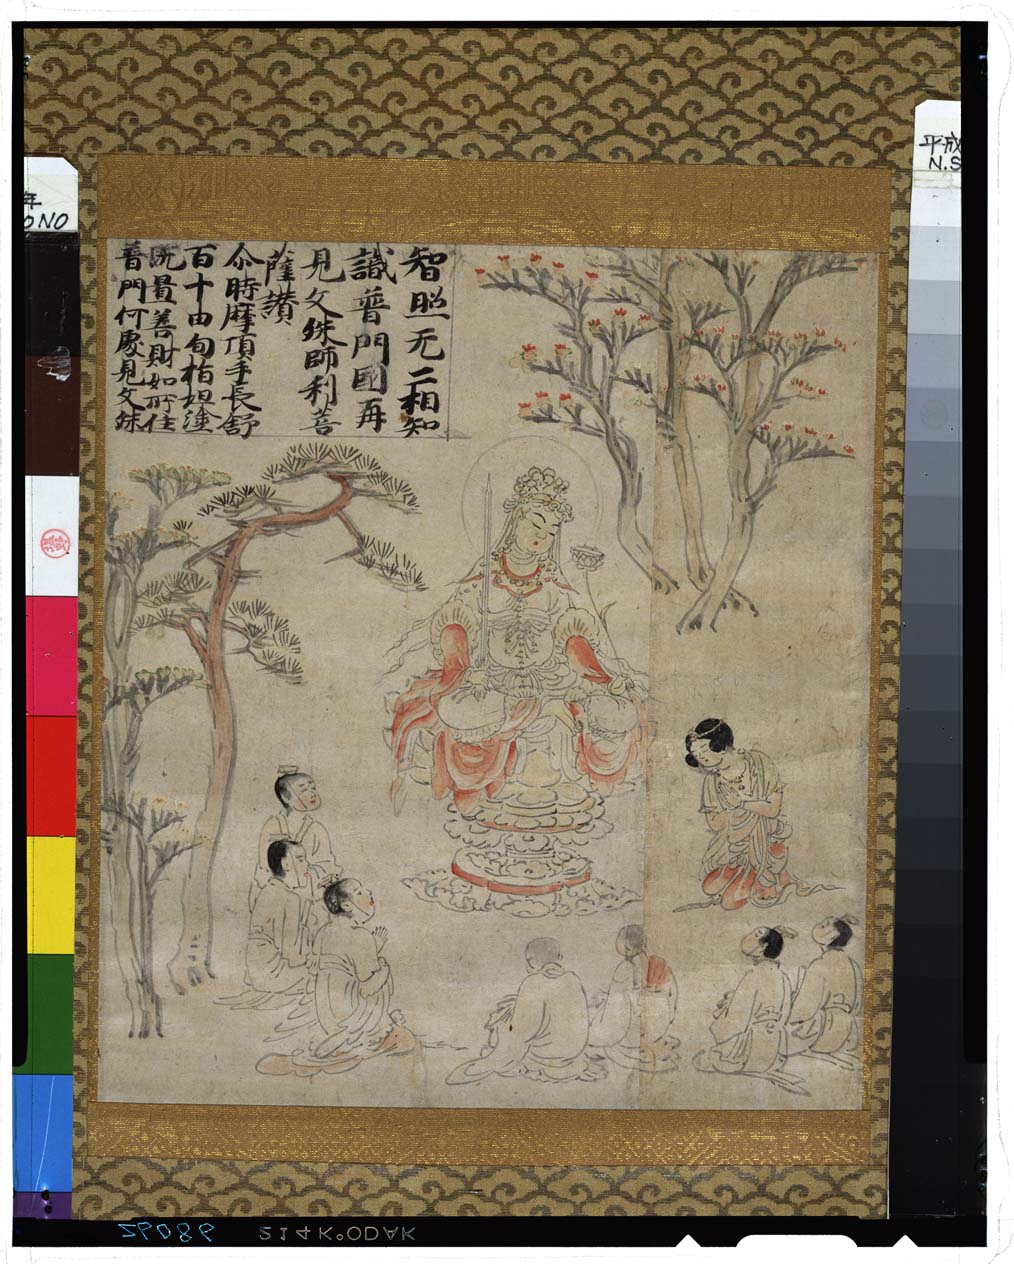 智照无二相知
識普門國再
見文殊師利菩
薩讃
尒時摩頂手長舒
百十由旬指坦塗
既曇善財如所住
普門何處見文殊
平成
N.S
年
O NO
29089
214 KODAK